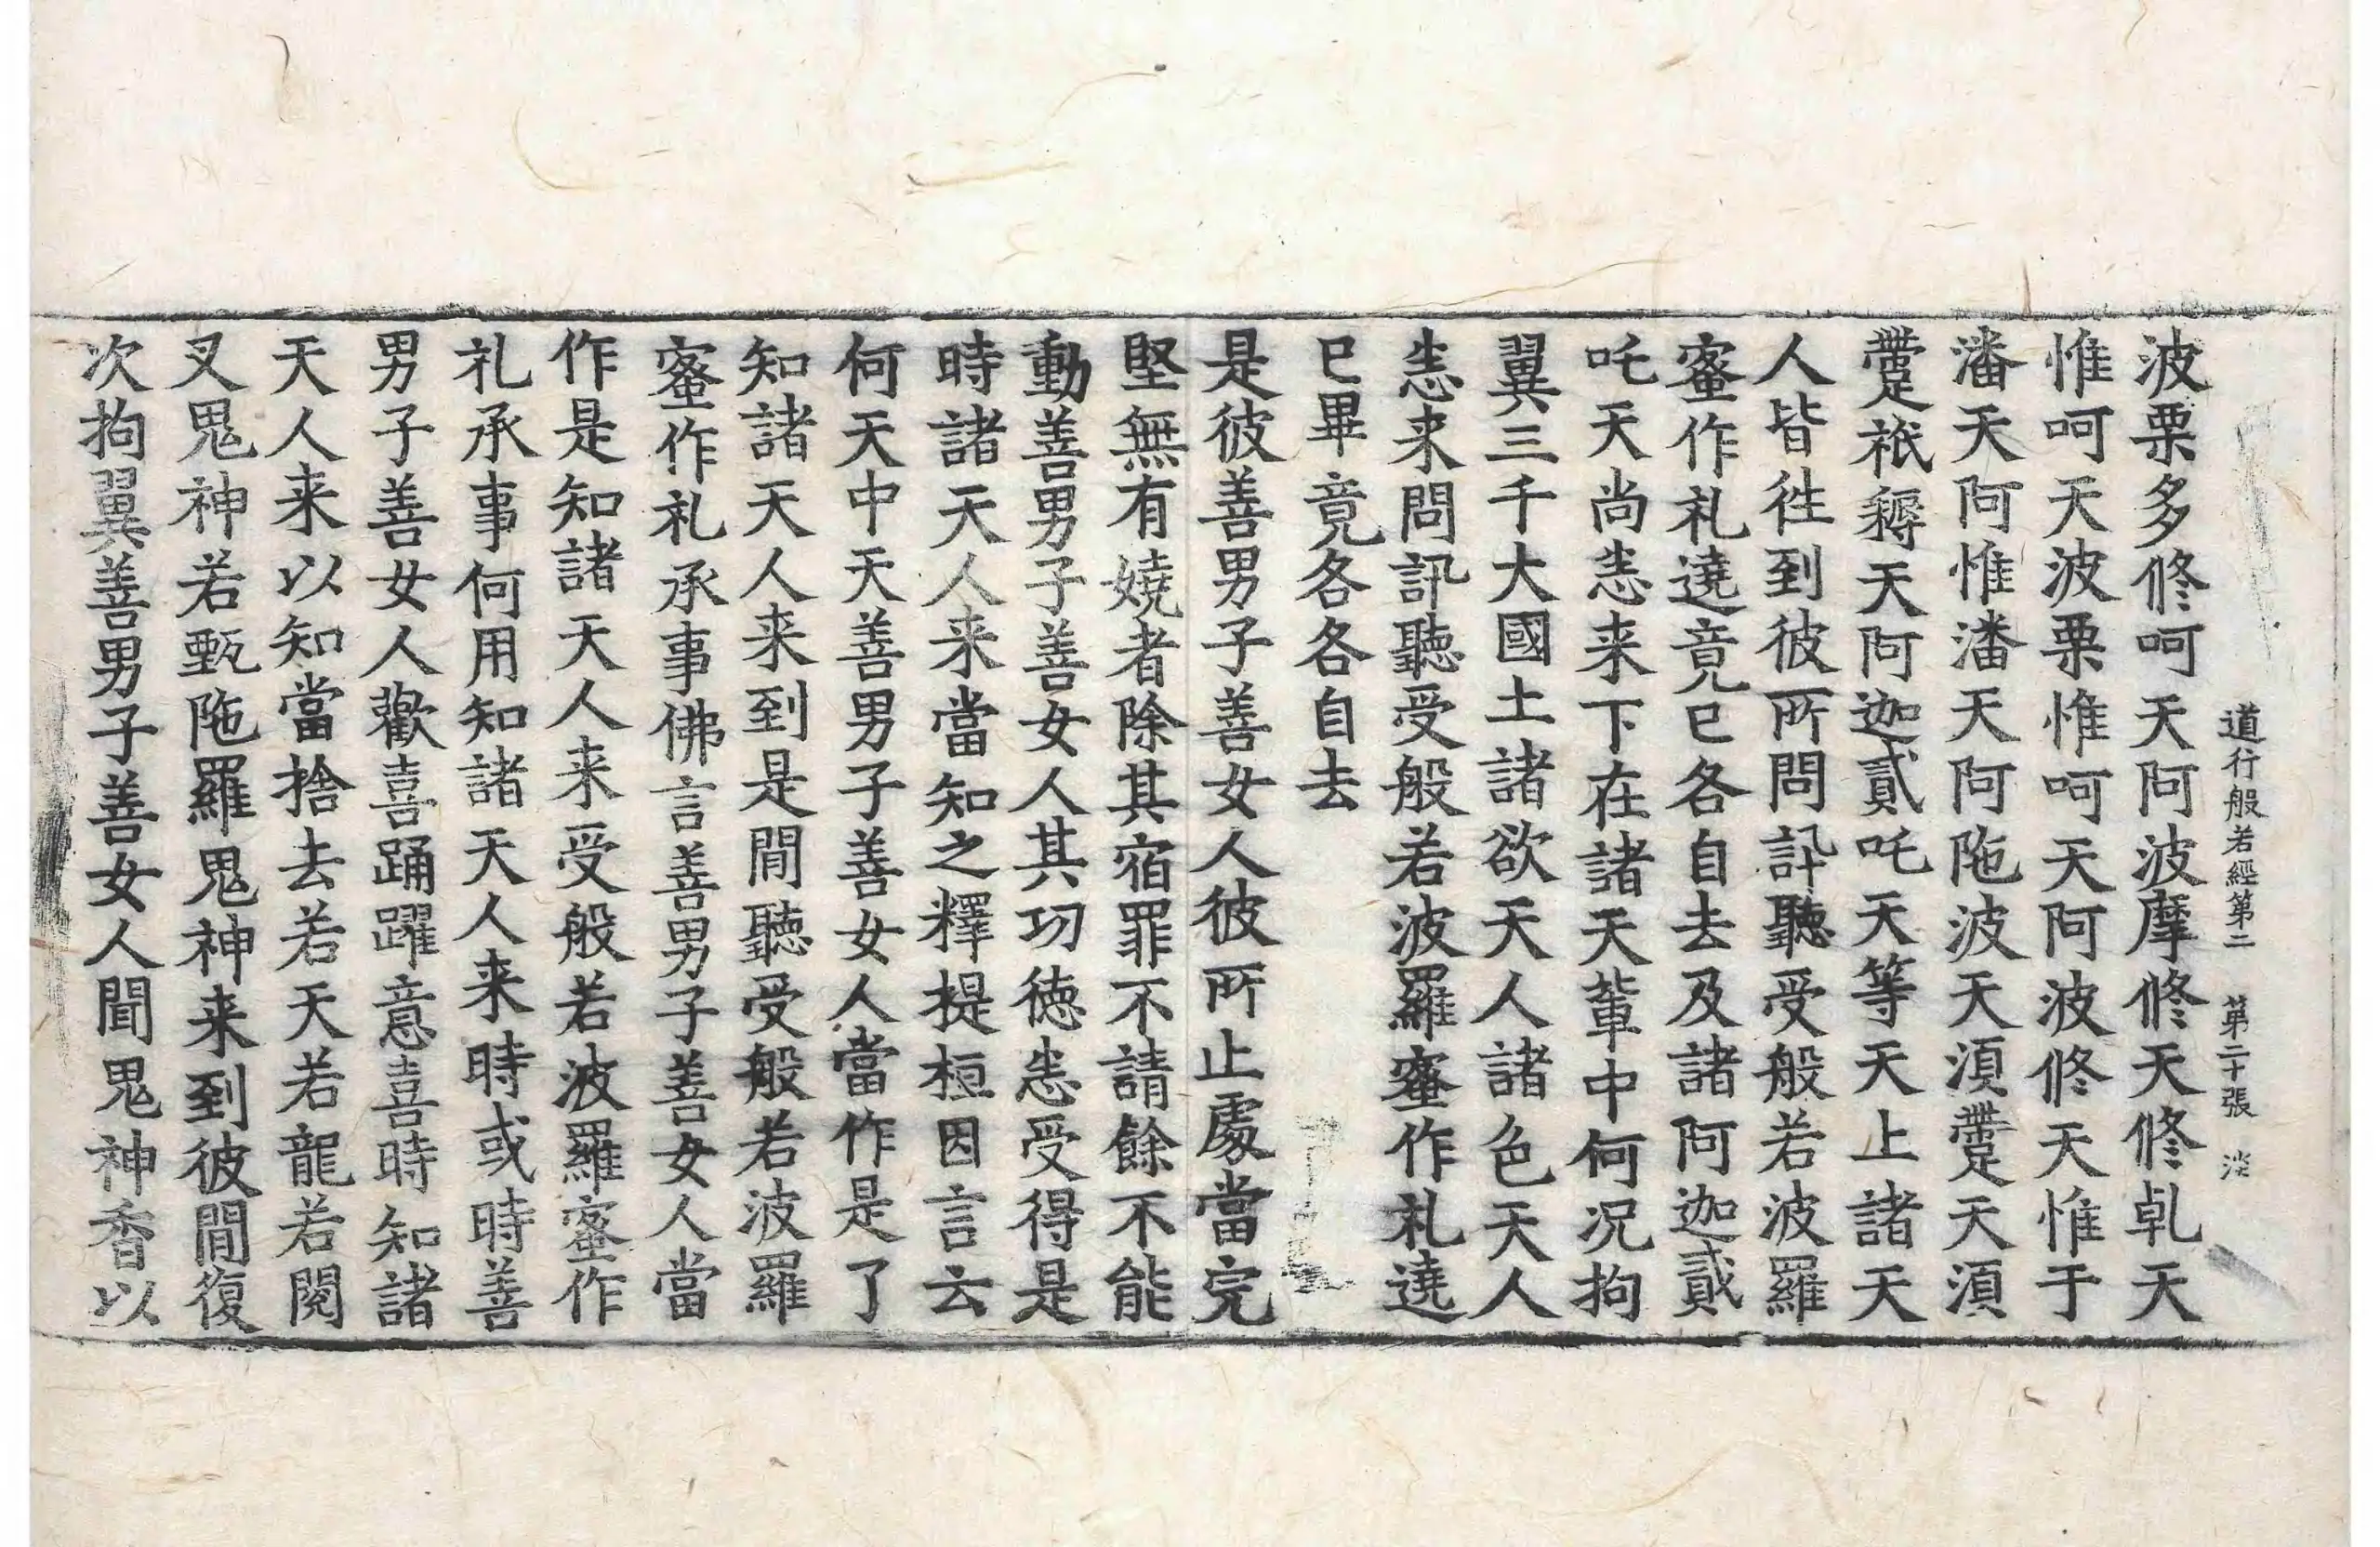 道行般若經第二　第二十張　淡
波栗多修呵天阿波摩修天修乹天
惟呵天波栗惟呵天阿波修天惟于
潘天阿惟潘天阿陁波天湏䟽天湏
䟽祇耨天阿迦貳吒天等天上諸天
人皆徃到彼所問訊聽受般若波羅
蜜作礼遶竟已各自去及諸阿迦貳
吒天尚悉来下在諸天軰中何况拘
翼三千大國土諸欲天人諸色天人
悉来問訊聽受般若波羅蜜作礼遶
已畢竟各各自去
是彼善男子善女人彼所止處當完
堅無有嬈者除其宿罪不請餘不能
動善男子善女人其功徳悉受得是
時諸天人来當知之釋提桓因言云
何天中天善男子善女人當作是了
知諸天人来到是間聽受般若波羅
蜜作礼承事佛言善男子善女人當
作是知諸天人来受般若波羅蜜作
礼承事何用知諸天人来時或時善
男子善女人歡喜踊躍意喜時知諸
天人来以知當捨去若天若龍若閱
叉鬼神若甄陁羅鬼神来到彼間復
次拘翼善男子善女人聞鬼神香以